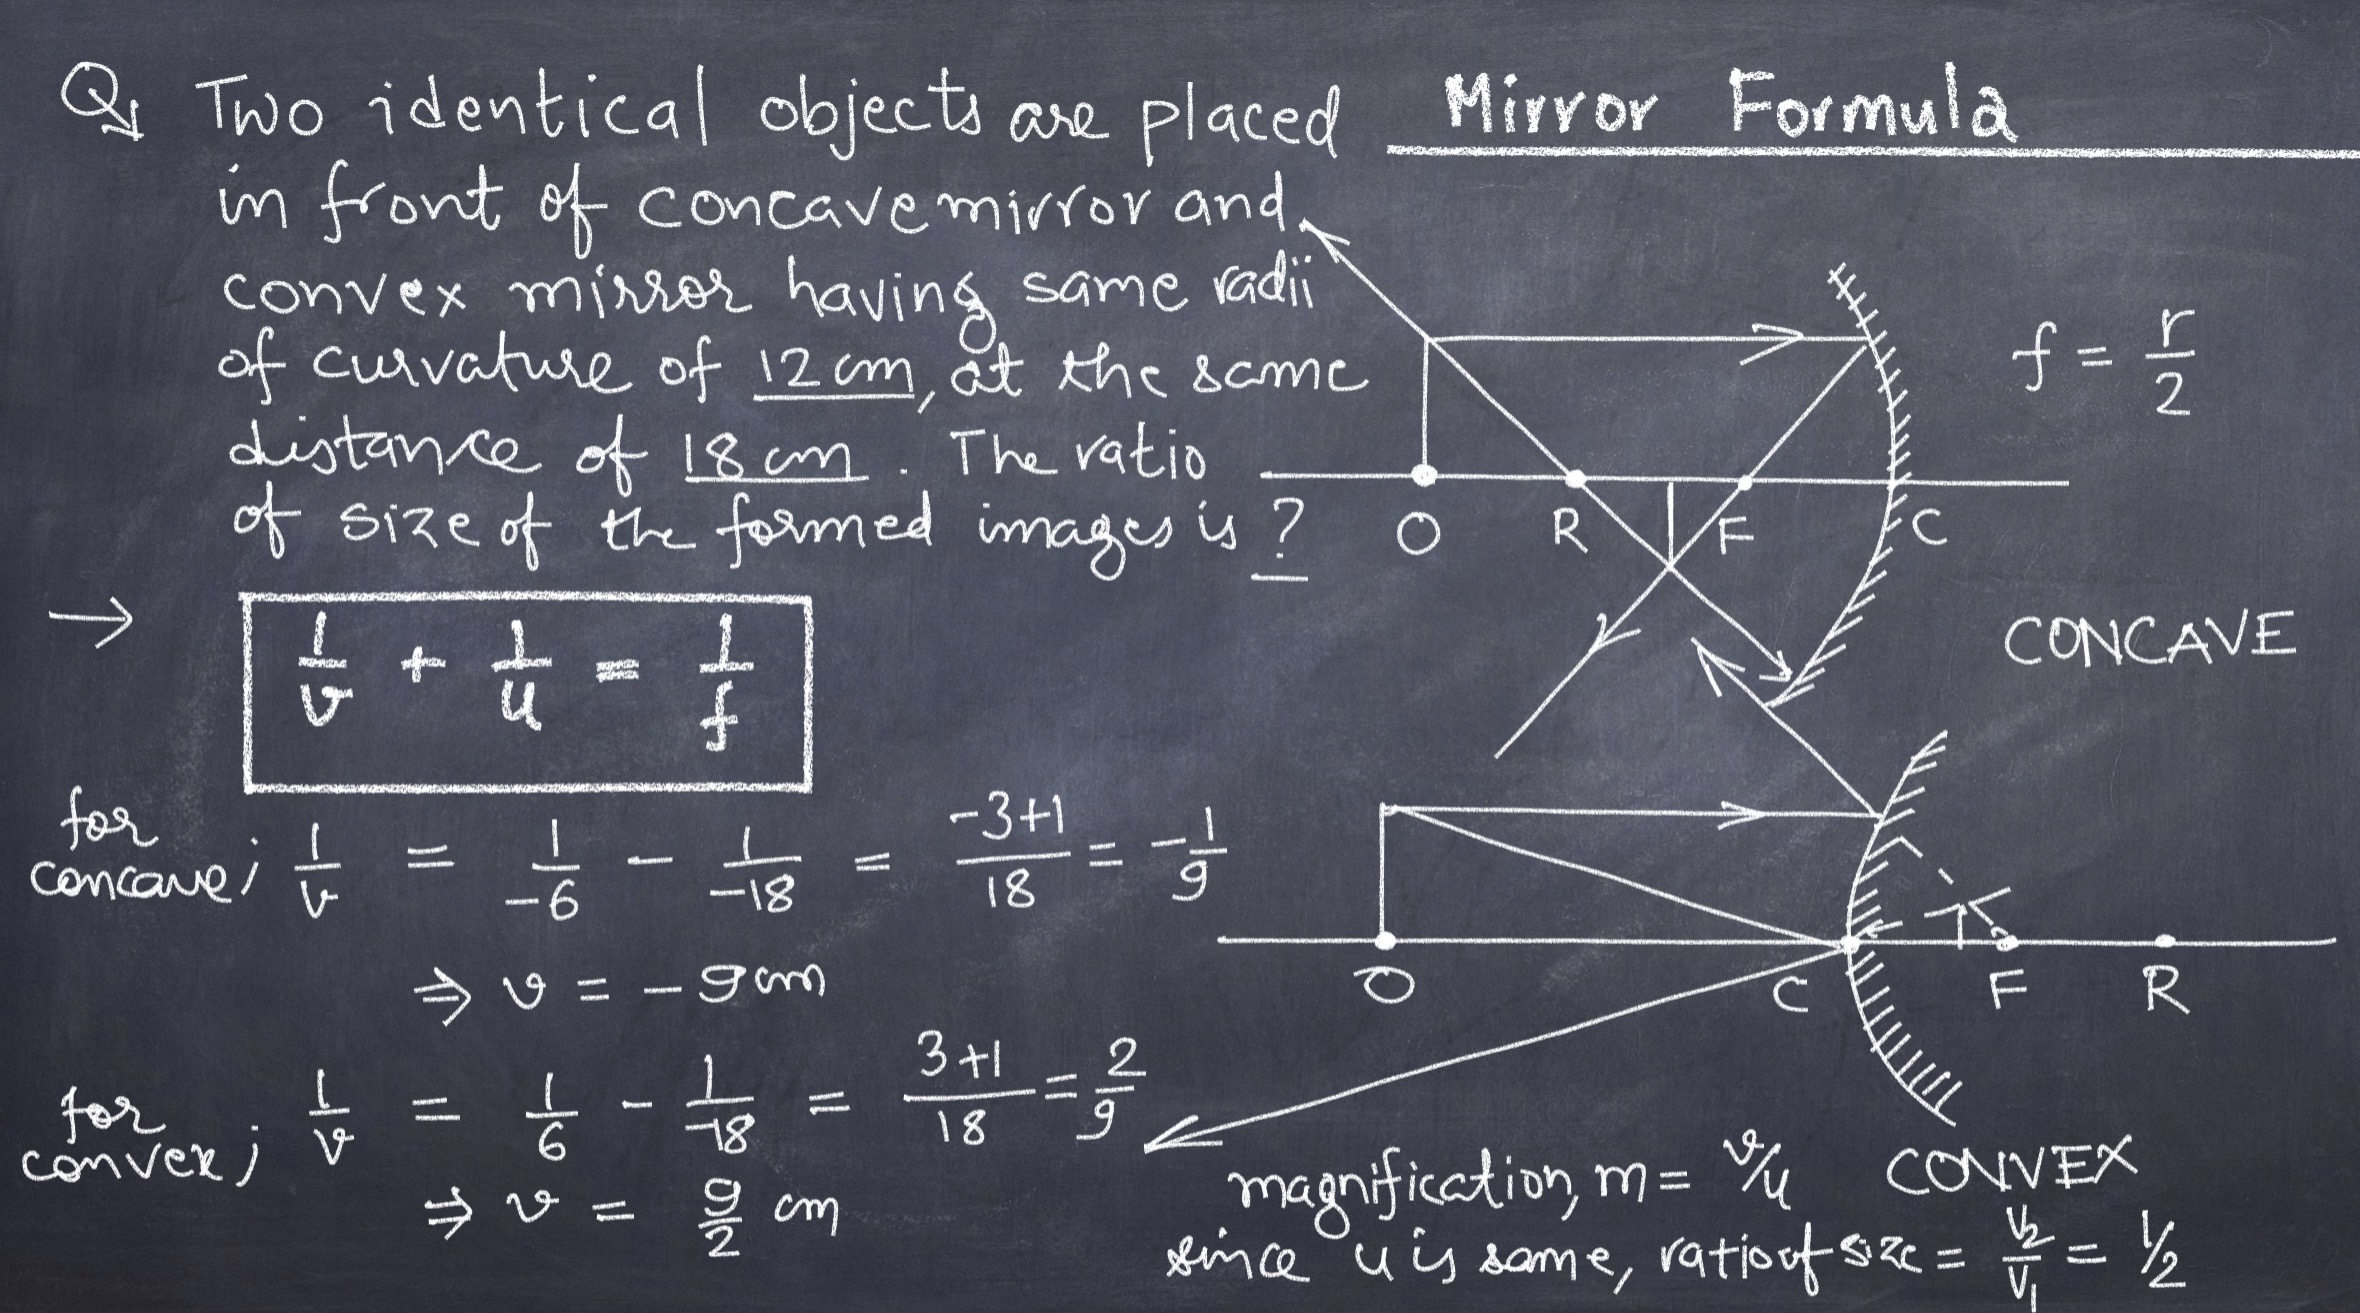 Q, Two identical objects are placed
in front of concave mirror and
convex mirror having same radii
of curvature of 12 cm, at the same
distance of 18 cm. The ratio
of size of the formed images is ?
→ 1/v + 1/u = 1/f
for concave; 1/v = 1/-6 - 1/-18 = -3+1/18 = -1/9
⇒ v = -9 cm
for convex; 1/v = 1/6 - 1/-18 = 3+1/18 = 2/9
⇒ v = 9/2 cm
Mirror Formula
f = r/2
O R F C
CONCAVE
O C F R
CONVEX
magnification, m = v/u
since u is same, ratio of size = v2/v1 = 1/2